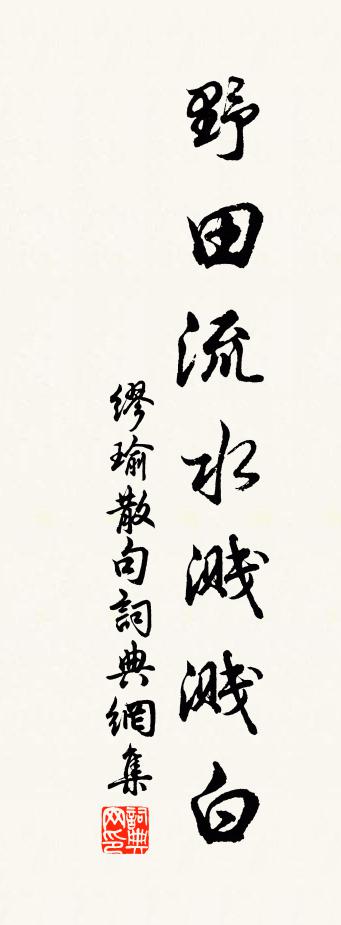 野田流水濺濺白
繆瑜散句詞典網集
詞典网印